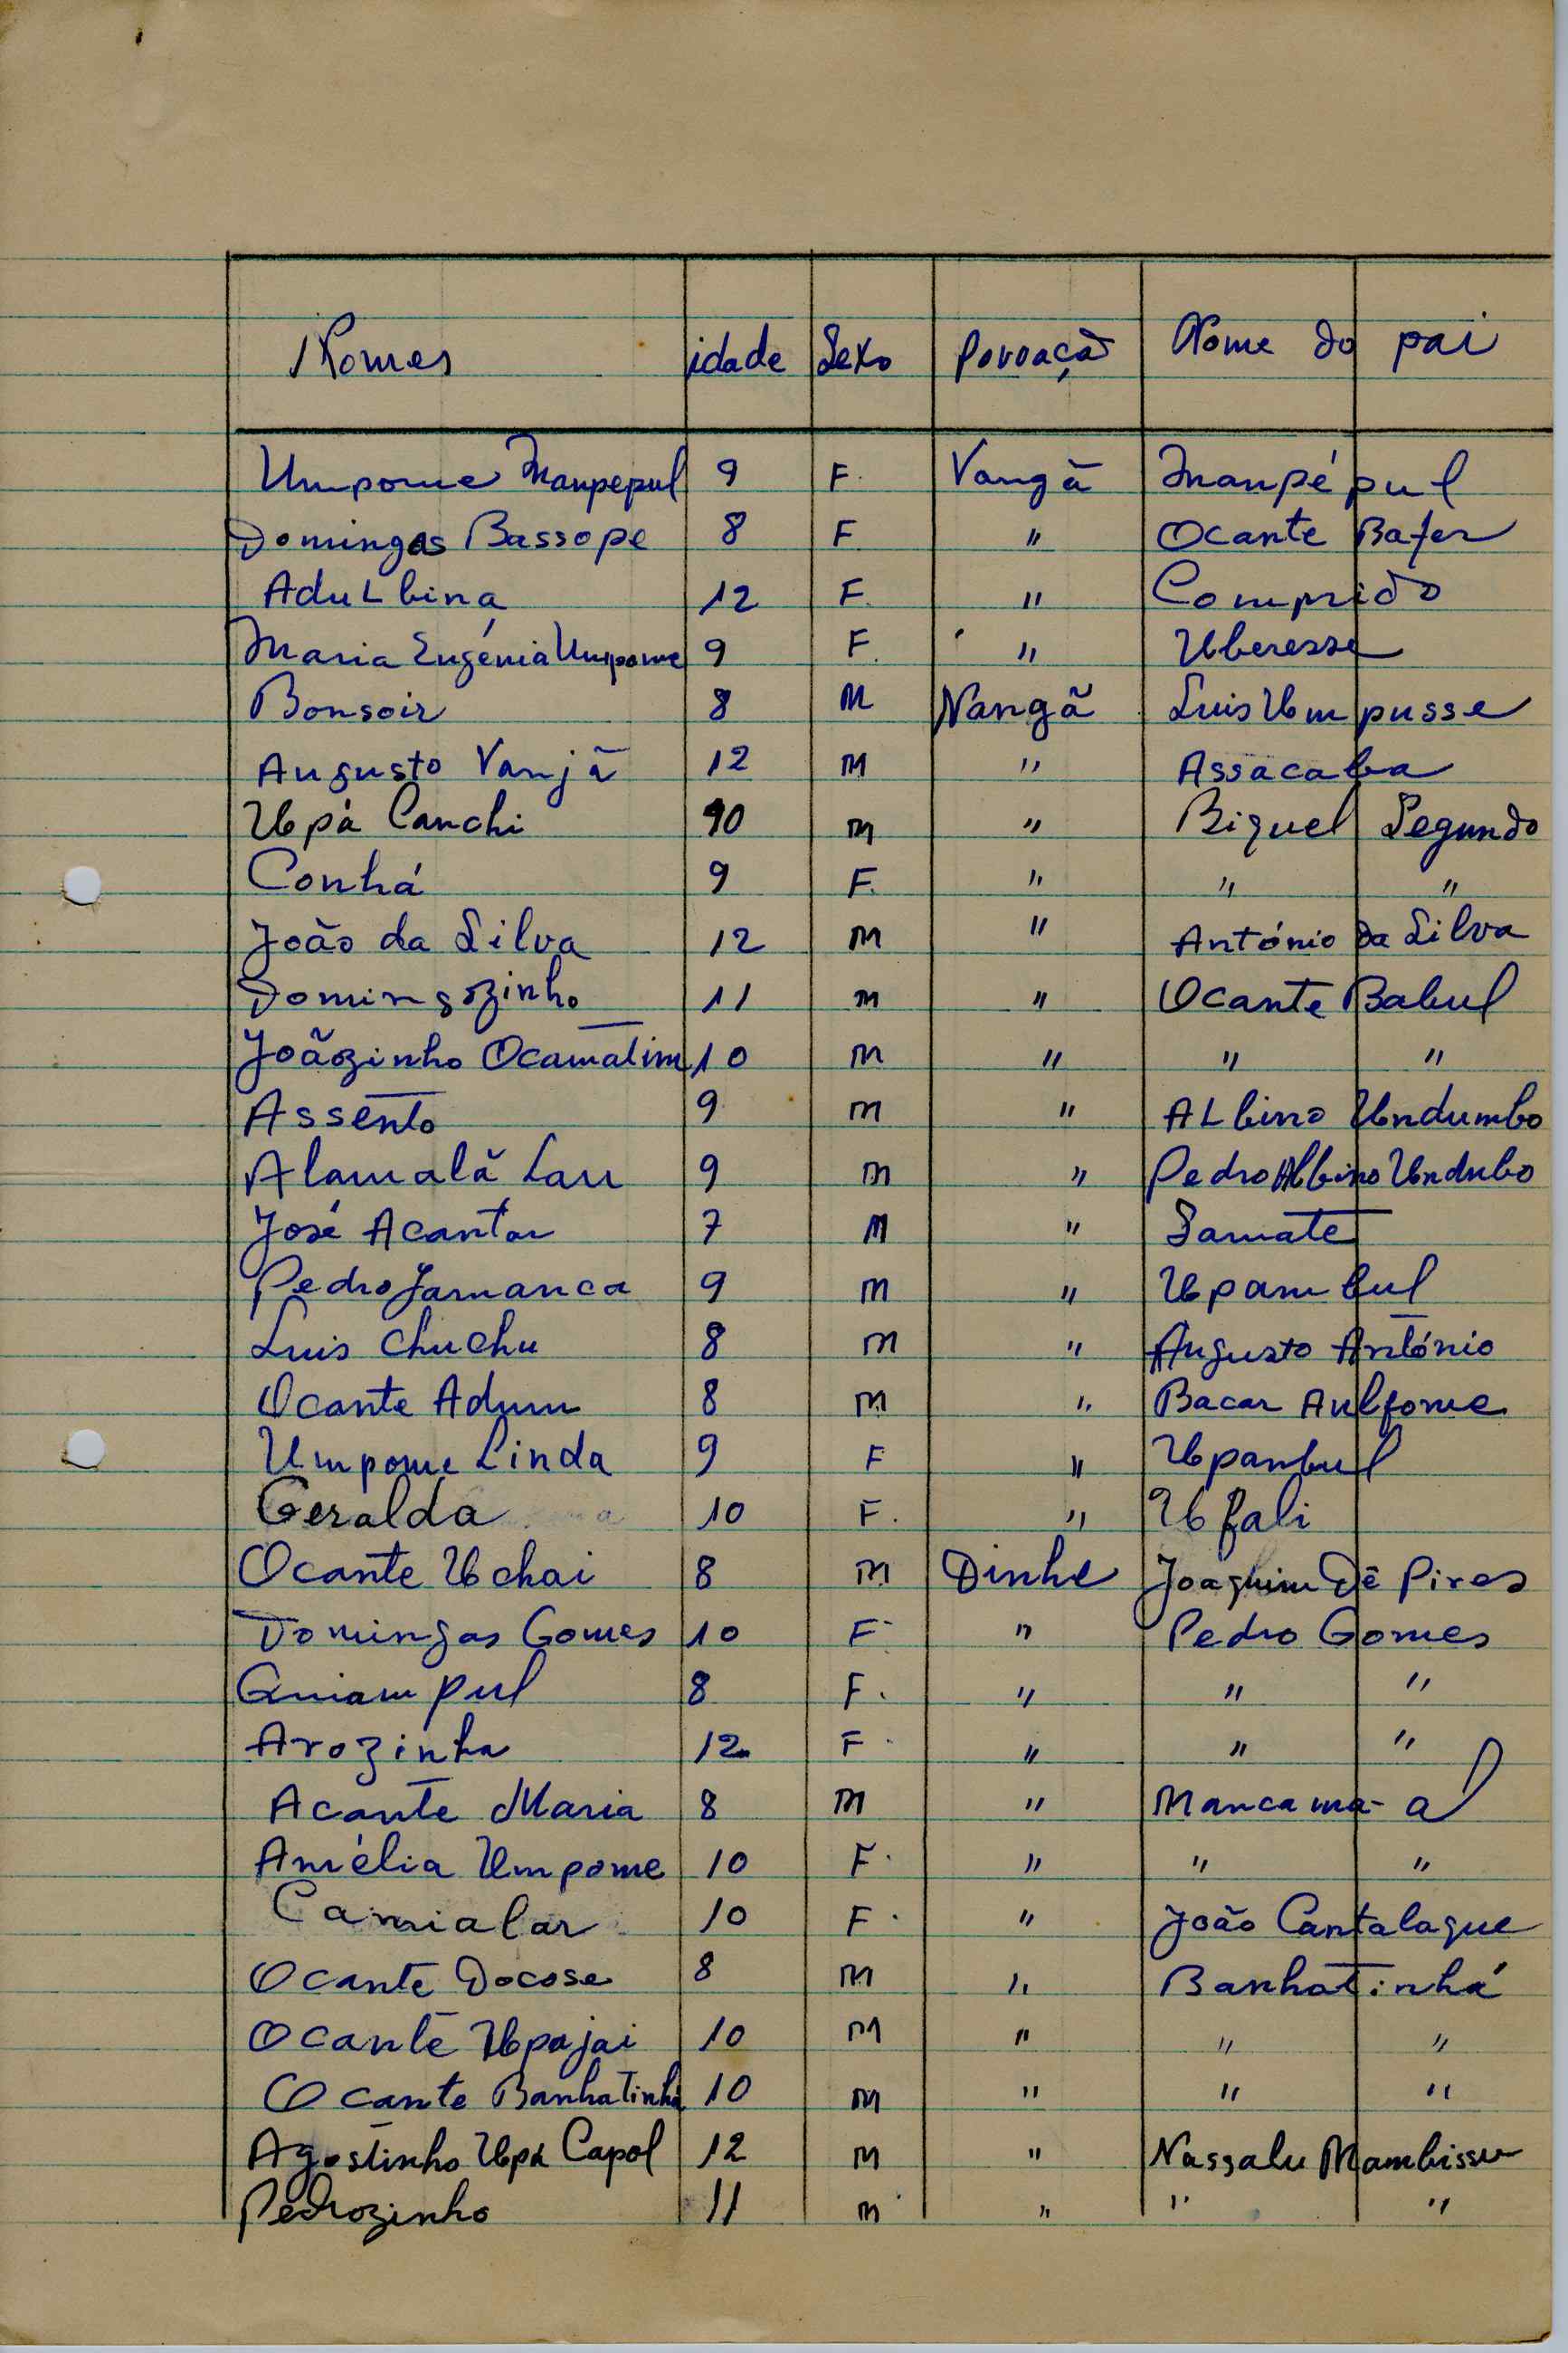 Nomes idade Sexo Povoação Nome do pai
Umpome Manpepul 9 F. Vangã Manpépul
Domingas Bassope 8 F. " Ocante Bafer
Adulbina 12 F. " Comprido
Maria Eugénia Umpome 9 F. " Uberesse
Bonsoir 8 M Nangã Luis Umpusse
Augusto Vanjã 12 M " Assacaba
Upá Canchi 10 m " Biquel Segundo
Conhá 9 F. " " "
João da Silva 12 m " António da Silva
Domingozinho 11 m " Ocante Babul
Joãozinho Ocamatim 10 m " " "
Assento 9 m " Albino Undumbo
Alamalã Lau 9 m " Pedro Albino Undubo
José Acantar 7 M " Samate
Pedro Jamanca 9 m " Upambul
Luis Chuchu 8 m " Augusto António
Ocante Adum 8 m " Bacar Aulfome
Umpome Linda 9 F " Upanbul
Geralda 10 F. " Ufali
Ocante Uchai 8 m Dinhe Joaquim Dê Pires
Domingas Gomes 10 F " Pedro Gomes
Quiampul 8 F. " " "
Arozinha 12 F " " "
Acante Maria 8 m " Mancama-al
Amélia Umpome 10 F. " " "
Camialar 10 F. " João Cantalaque
Ocante Docose 8 m " Banhatinhá
Ocante Upajai 10 m " " "
Ocante Banhatinhá 10 m " " "
Agostinho Upá Capol 12 m " Nassalu Mambissu
Pedrozinho 11 m " " "